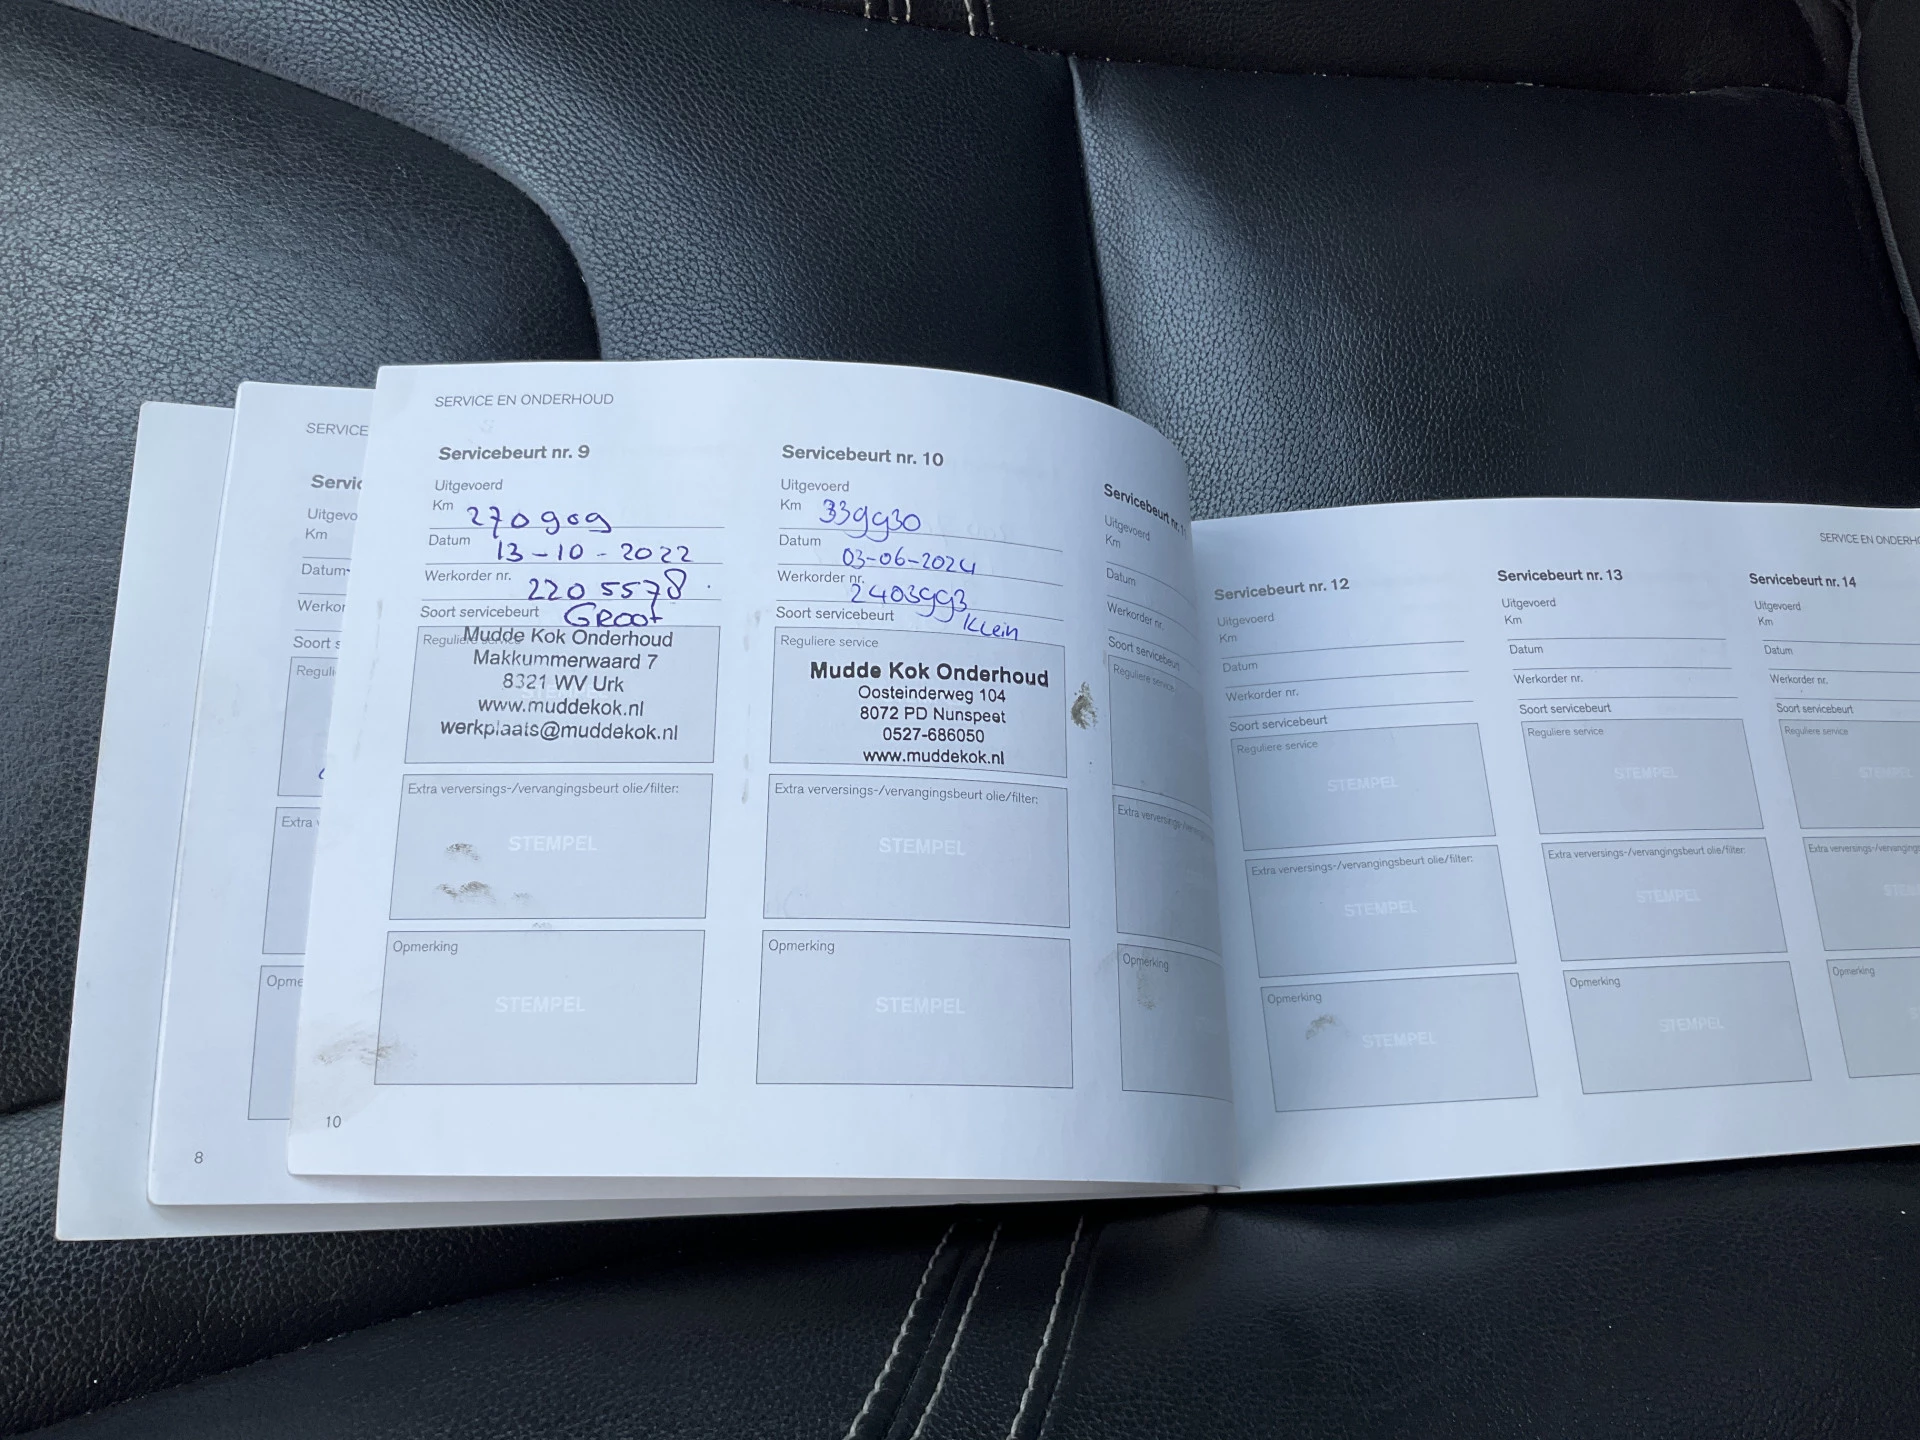 SERVICE
Servic
Uitgevo
Km
Datum
Werkor
Soort s
Reguli
Extra v
Opme
8
SERVICE EN ONDERHOUD
Servicebeurt nr. 9
Uitgevoerd
Km 270909
Datum 13-10-2022
Werkorder nr. 2205578
Soort servicebeurt GROOT
Reguliere service
Mudde Kok Onderhoud
Makkummerwaard 7
8321 WV Urk
www.muddekok.nl
werkplaats@muddekok.nl
Extra verversings-/vervangingsbeurt olie/filter:
STEMPEL
Opmerking
STEMPEL
10
Servicebeurt nr. 10
Uitgevoerd
Km 339930
Datum 03-06-2024
Werkorder nr. 2403993
Soort servicebeurt Klein
Reguliere service
Mudde Kok Onderhoud
Oosteinderweg 104
8072 PD Nunspeet
0527-686050
www.muddekok.nl
Extra verversings-/vervangingsbeurt olie/filter:
STEMPEL
Opmerking
STEMPEL
Servicebeurt nr. 1
Uitgevoerd
Km
Datum
Werkorder nr.
Soort servicebeurt
Reguliere service
Extra verversings-/vervanging
Opmerking
SERVICE EN ONDERHO
Servicebeurt nr. 12
Uitgevoerd
Km
Datum
Werkorder nr.
Soort servicebeurt
Reguliere service
STEMPEL
Extra verversings-/vervangingsbeurt olie/filter:
STEMPEL
Opmerking
STEMPEL
Servicebeurt nr. 13
Uitgevoerd
Km
Datum
Werkorder nr.
Soort servicebeurt
Reguliere service
STEMPEL
Extra verversings-/vervangingsbeurt olie/filter:
STEMPEL
Opmerking
STEMPEL
Servicebeurt nr. 14
Uitgevoerd
Km
Datum
Werkorder nr.
Soort servicebeurt
Reguliere service
STEMPEL
Extra verversings-/vervangings
STE
Opmerking